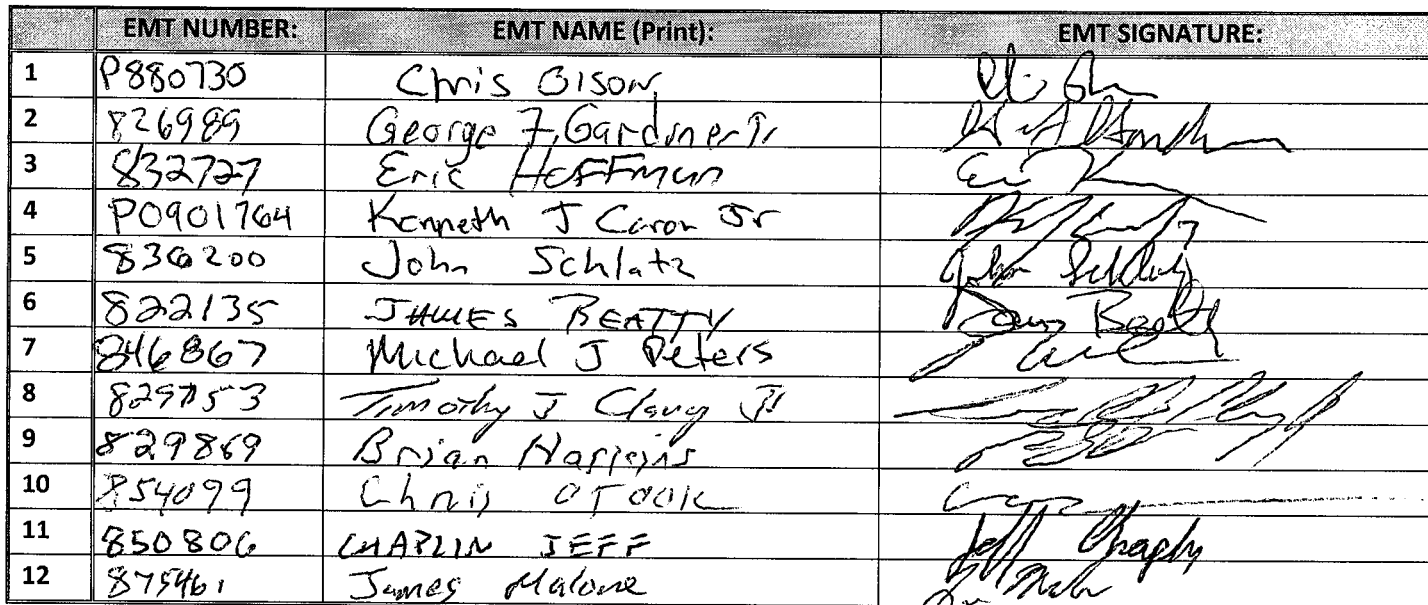 EMT NUMBER: EMT NAME (Print): EMT SIGNATURE:
1 P880730 Chris Olson
2 826989 George F. Gardiner Jr
3 832727 Eric Hoffman
4 P0901764 Kenneth J Caron Jr
5 836200 John Schlatz John Schlatz
6 822135 JAMES BEATTY James Beatty
7 846867 Michael J Peters
8 Timothy J Clancy Jr
9 829869 Brian
10 854099 Chris
11 850806 CHAPLIN JEFF Jeff Chaplin
12 875461 James Malone